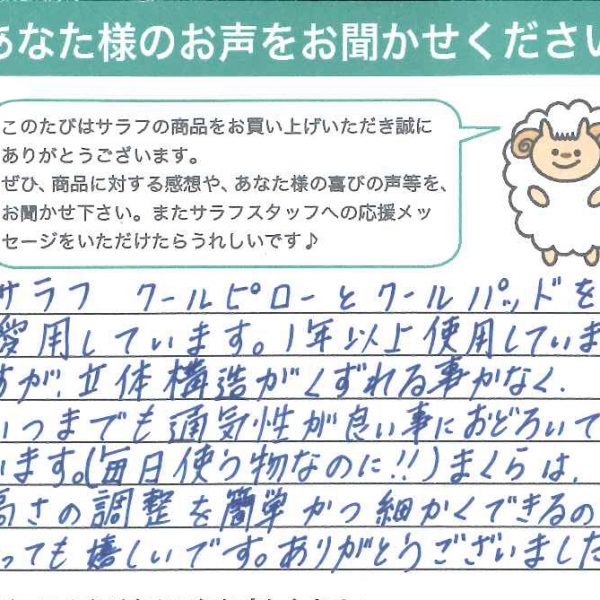 あなた様のお声をお聞かせください
このたびはサラフの商品をお買い上げいただき誠に
ありがとうございます。
ぜひ、商品に対する感想や、あなた様の喜びの声等を、
お聞かせ下さい。またサラフスタッフへの応援メッ
セージをいただけたらうれしいです♪
サラフ クールピローとクールパッドを
愛用しています。1年以上使用していま
すが、立体構造がくずれる事がなく、
いつまでも通気性が良い事におどろいて
います。(毎日使う物なのに!!)まくらは、
高さの調整を簡単かつ細かくできるの
っても嬉しいです。ありがとうございました